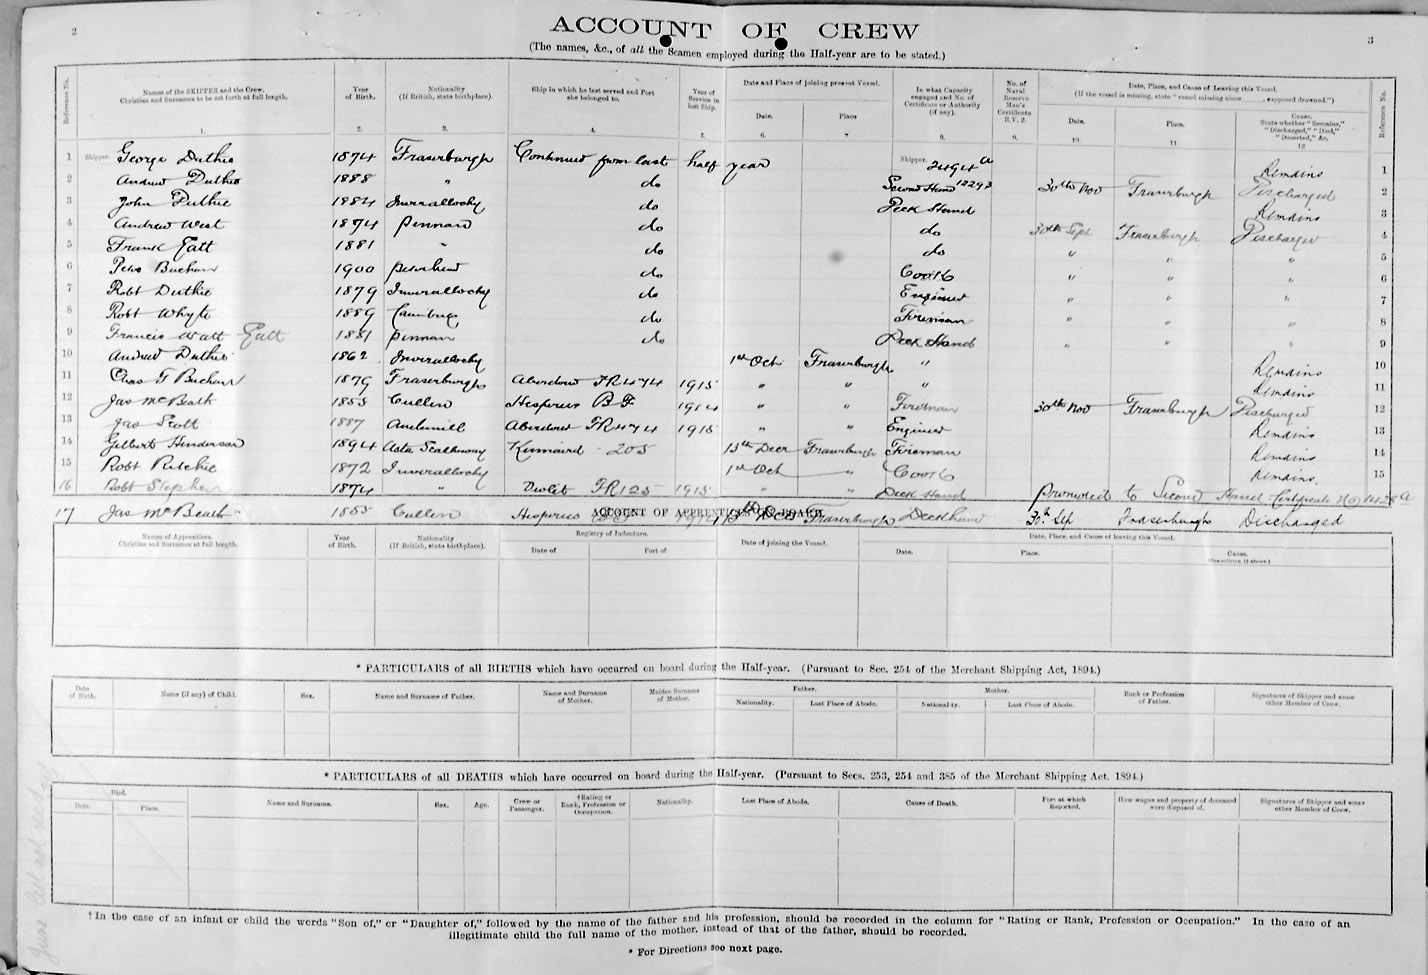 2
ACCOUNT OF CREW
3
(The names, &c., of all the Seamen employed during the Half-year are to be stated.)
Reference No.
Names of the SKIPPER and the Crew. Christian and Surnames to be set forth at full length.
1.
Year of Birth.
2.
Nationality (If British, state birthplace).
3.
Ship in which he last served and Port she belonged to.
4.
Year of Service in last Ship.
5.
Date and Place of joining present Vessel.
Date.
6.
Place
7
In what Capacity engaged and No. of Certificate or Authority (if any).
8.
No. of Naval Reserve Man's Certificate R.V. 2.
9.
Date, Place, and Cause of Leaving this Vessel.
(If the vessel is missing, state "vessel missing since supposed drowned.")
Date.
10.
Place.
11.
Cause. State whether "Remains," "Discharged," "Died," "Deserted, &c.
12
Reference No.
1 Skipper. George Duthie 1874 Fraserburgh Continued from last half year Skipper. 2494 Remains 1
2 Andrew Duthie 1888 " do Second Hand 12293 30th Nov Fraserburgh Discharged 2
3 John Duthie 1884 Inverallochy do Deck Hand Remains 3
4 Andrew West 1874 Pennan do do 30th Sept Fraserburgh Discharged 4
5 Frank Gatt 1881 " do do " " " 5
6 Peter Buchan 1900 Peterhead do Cook " " " 6
7 Robt Duthie 1879 Inverallochy do Engineer " " " 7
8 Robt Whyte 1889 do Fireman " " " 8
9 Francis Watt Gatt 1881 Pennan do Deck Hand " " " 9
10 Andrew Duthie 1862 Inverallochy 1st Oct Fraserburgh " Remains 10
11 Chas G Buchan 1879 Fraserburgh Aberdour FR 474 1915 " " " Remains 11
12 Jas McBeath 1855 Cullen Hesperus B.F. 1914 " " Fireman 30th Nov Fraserburgh Discharged 12
13 Jas Scott 1887 Aberdour FR 474 1915 " " Engineer Remains 13
14 Gilbert Henderson 1894 Scalloway Kinnaird 205 13th Decr Fraserburgh Fireman Remains 14
15 Robt Ritchie 1872 Inverallochy 1st Oct " Cook Remains. 15
16 Robt Stephen 1874 " Violet FR 125 1915 " " Deck Hand Promoted to Second Hand Certificate No
17 Jas McBeath 1855 Cullen Hesperus 1914 Fraserburgh Deckhand 30th Sep Fraserburgh Discharged
ACCOUNT OF APPRENTICES ON BOARD.
Names of Apprentices. Christian and Surnames at full length.
Year of Birth.
Nationality (If British, state birthplace).
Registry of Indenture.
Date of
Port of
Date of joining the Vessel.
Date, Place, and Cause of leaving this Vessel.
Date.
Place.
Cause.
(See column 12 above.)
* PARTICULARS of all BIRTHS which have occurred on board during the Half-year. (Pursuant to Sec. 254 of the Merchant Shipping Act, 1894.)
Date of Birth.
Name (if any) of Child.
Sex.
Name and Surname of Father.
Name and Surname of Mother.
Maiden Surname of Mother.
Father.
Nationality.
Last Place of Abode.
Mother.
Nationality.
Last Place of Abode.
Rank or Profession of Father.
Signatures of Skipper and some other Member of Crew.
* PARTICULARS of all DEATHS which have occurred on board during the Half-year. (Pursuant to Secs. 253, 254 and 385 of the Merchant Shipping Act. 1894.)
Died.
Date.
Place.
Name and Surname.
Sex.
Age.
Crew or Passenger.
†Rating or Rank, Profession or Occupation.
Nationality.
Last Place of Abode.
Cause of Death.
Port at which Reported.
How wages and property of deceased were disposed of.
Signatures of Skipper and some other Member of Crew.
†In the case of an infant or child the words "Son of," or "Daughter of," followed by the name of the father and his profession, should be recorded in the column for "Rating or Rank, Profession or Occupation." In the case of an
illegitimate child the full name of the mother, instead of that of the father, should be recorded.
* For Directions see next page.